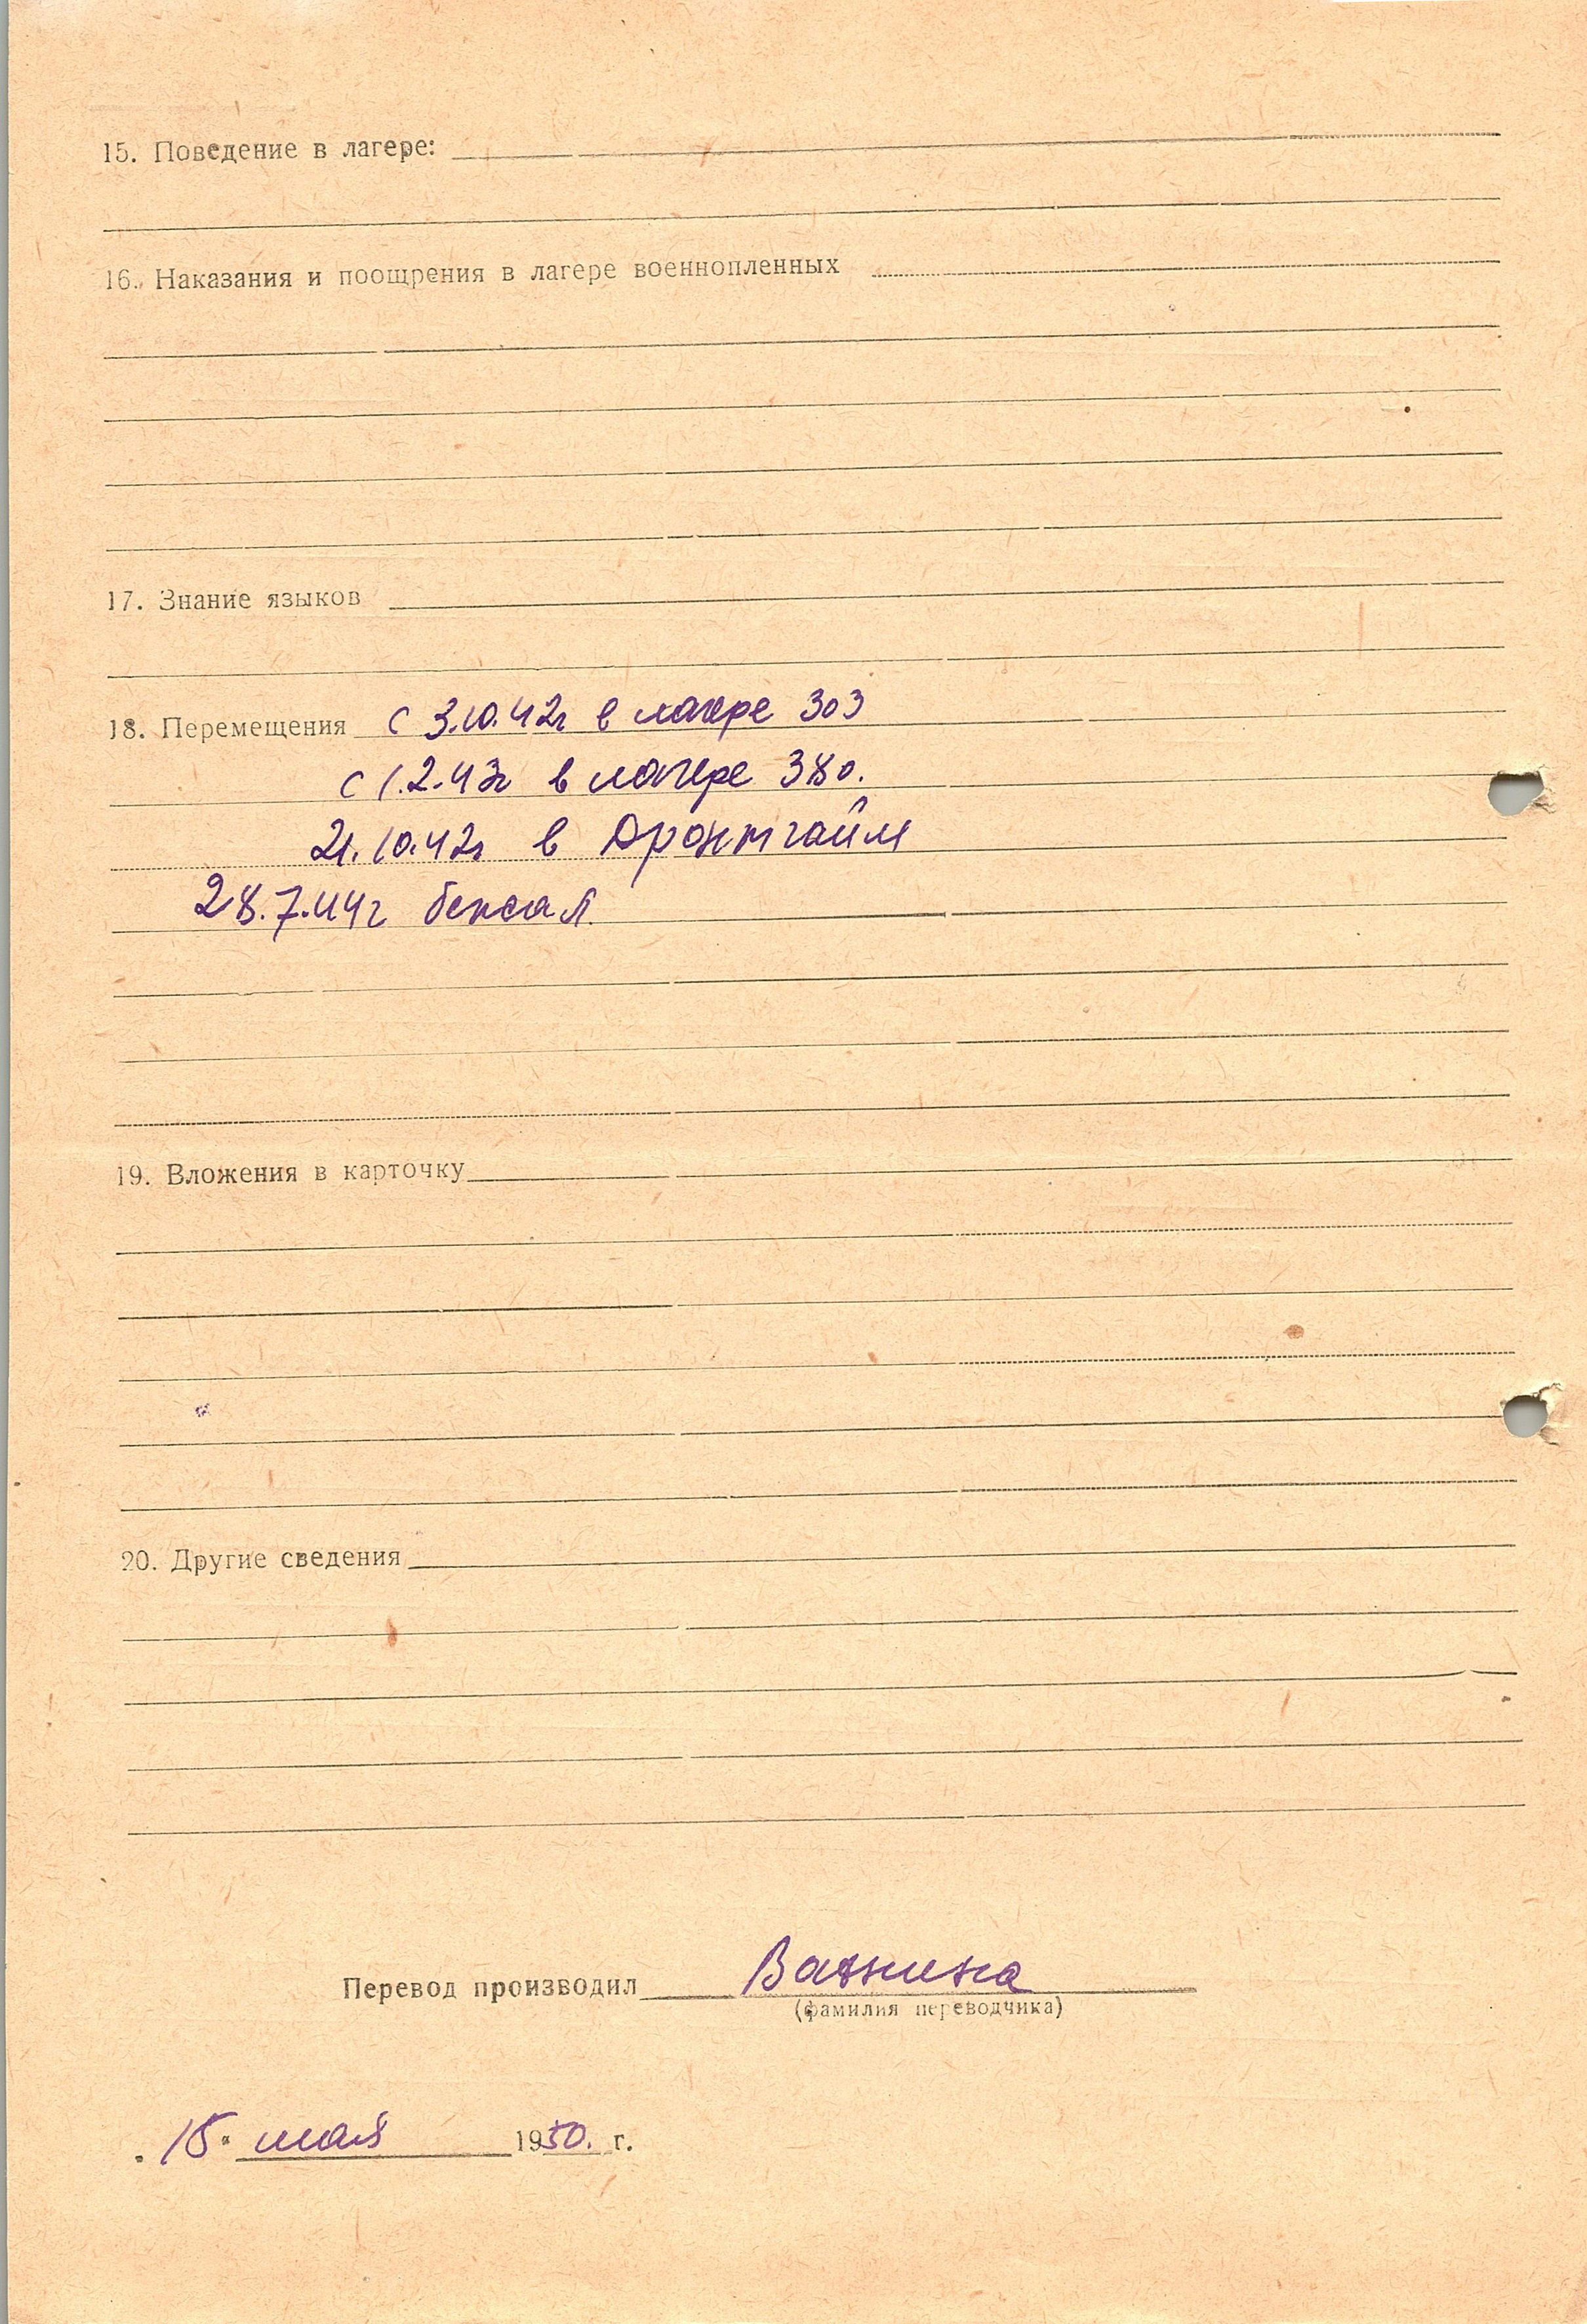 15. Поведение в лагере:
16. Наказания и поощрения в лагере военнопленных
17. Знание языков
18. Перемещения с 3.10.42г в лагере 303
с 1.2.43г в лагере 380.
21.10.42г в Дронтгайм
28.7.44г бежал
19. Вложения в карточку
20. Другие сведения
Перевод производил
(фамилия переводчика)
„15“ мая 1950. г.